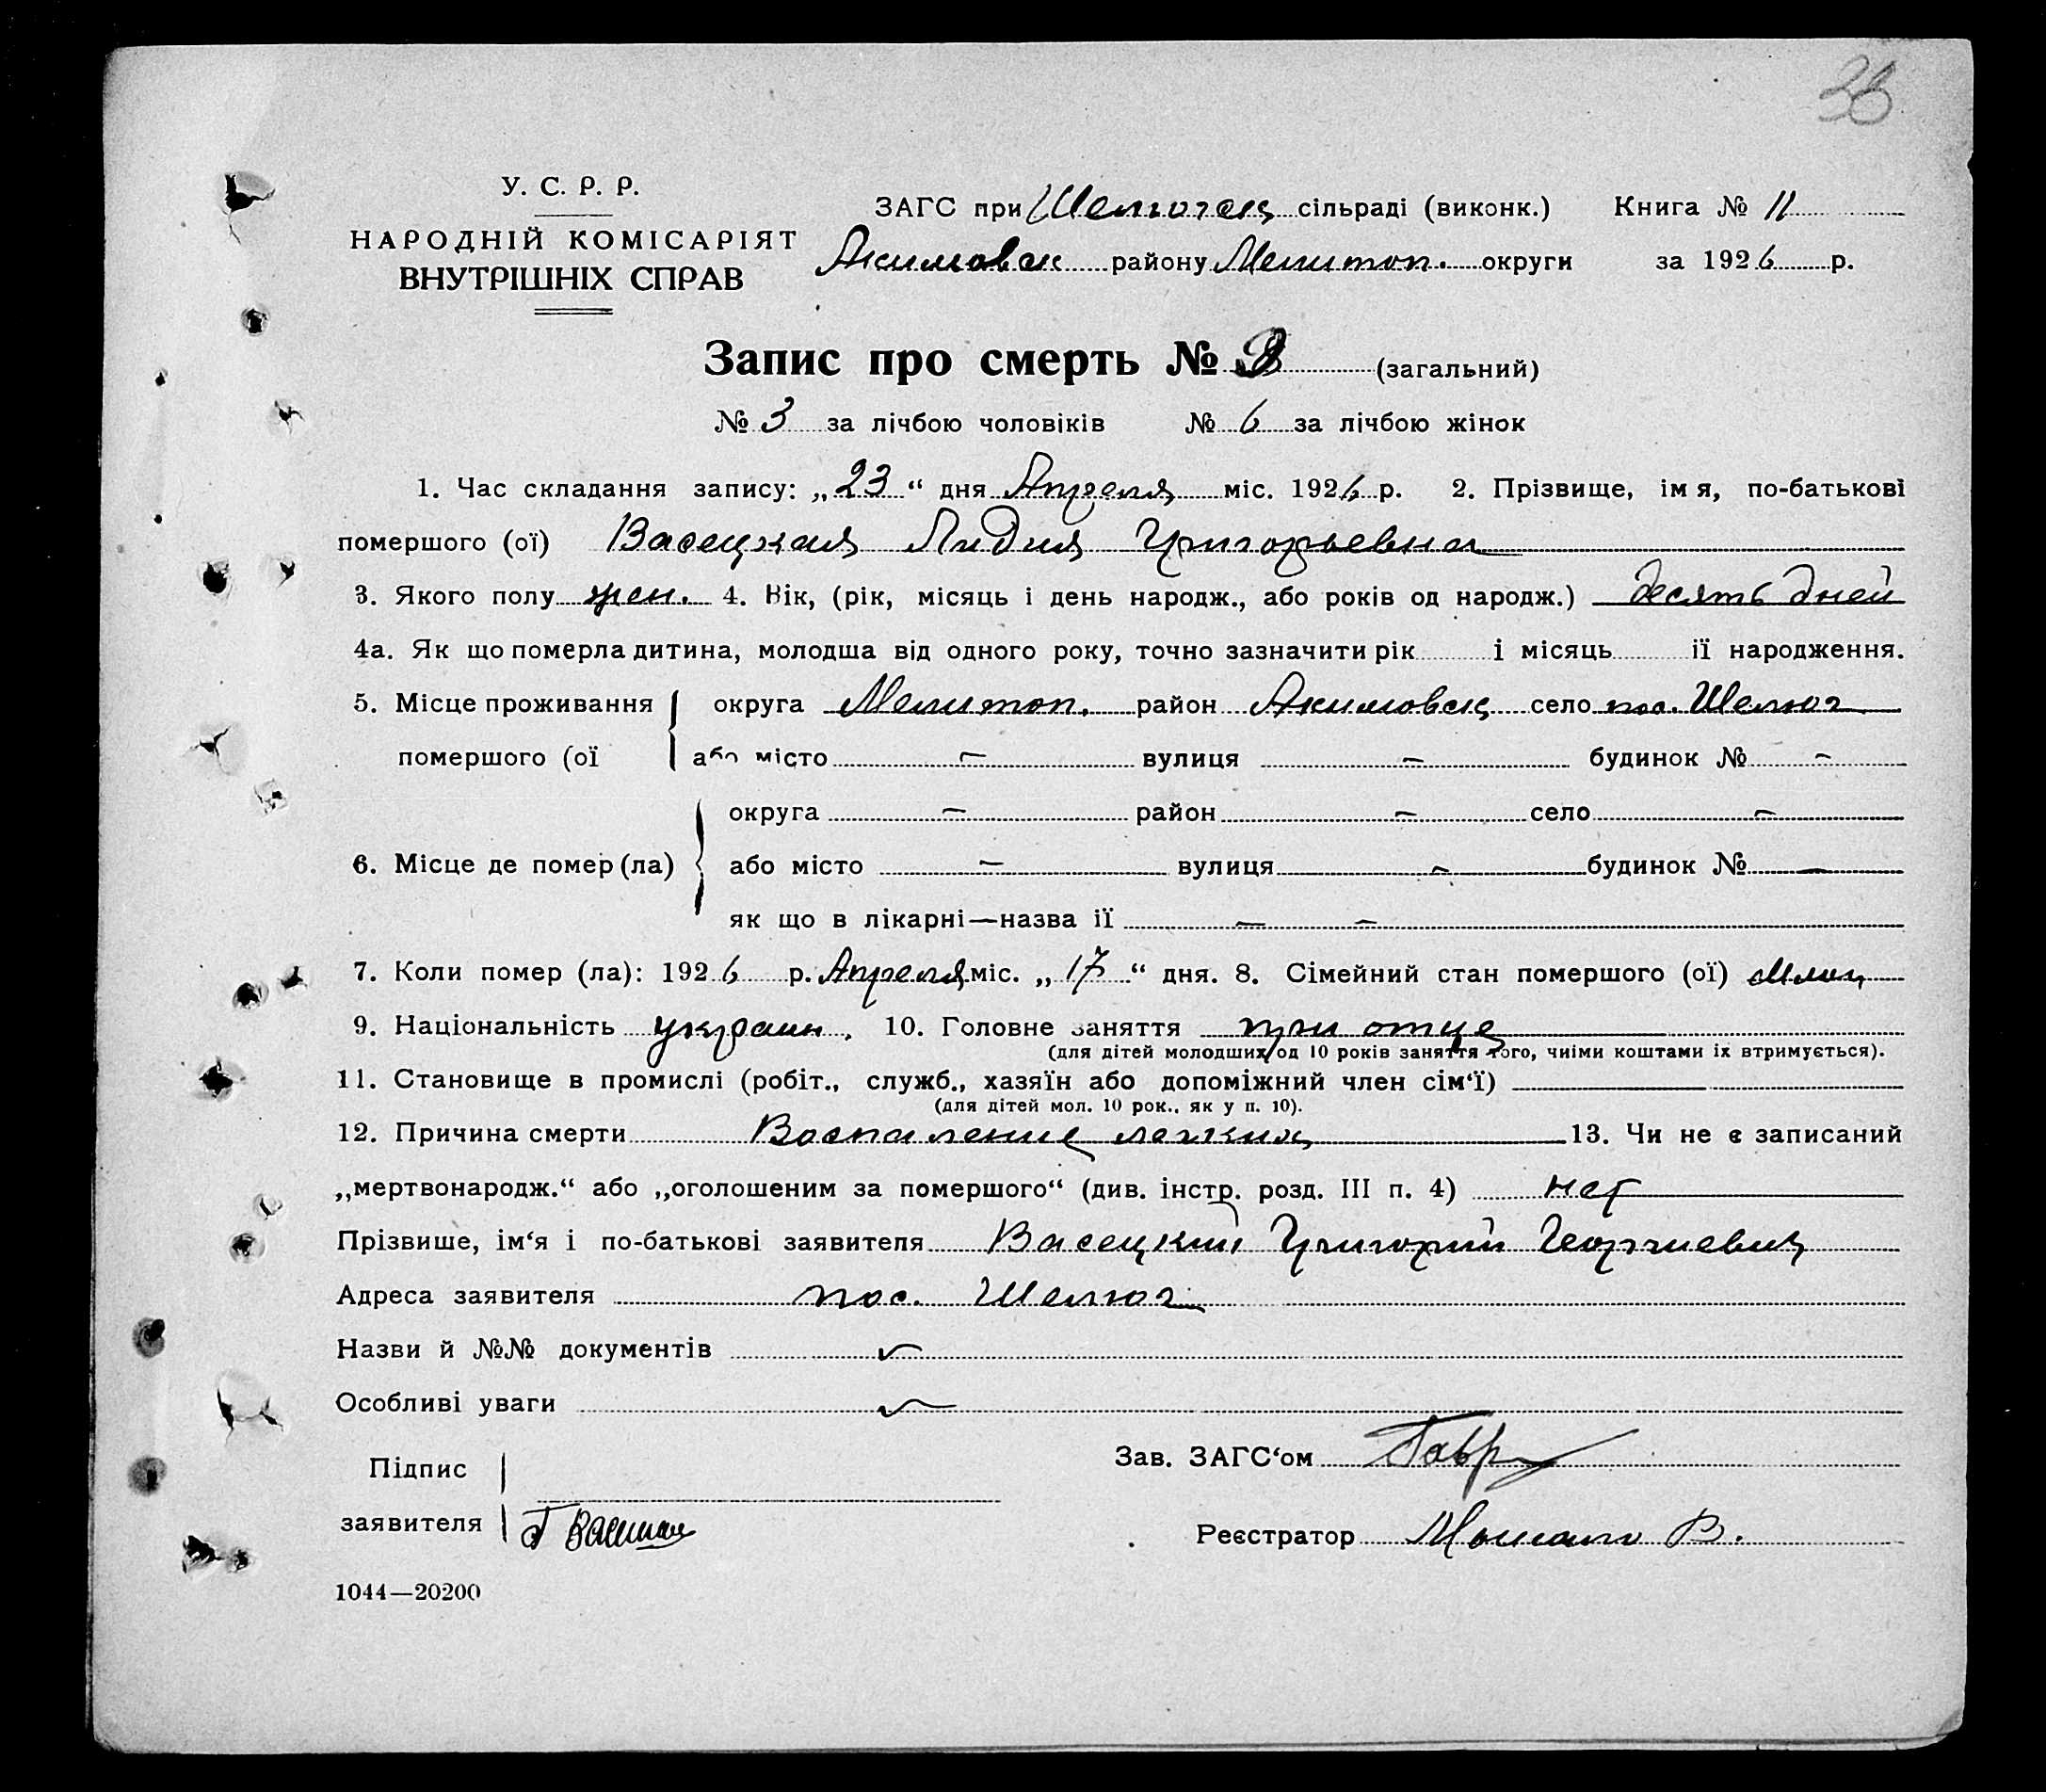 36
У. С. Р. Р.
НАРОДНІЙ КОМІСАРІЯТ
ВНУТРІШНІХ СПРАВ
ЗАГС при Шелюгск сільраді (виконк.) Книга № 11
Акимовск району Мелитоп. округи за 1926 р.
Запис про смерть № (загальний)
№ 3 за лічбою чоловіків № 6 за лічбою жінок
1. Час складання запису: „23“ дня Апреля міс. 1926 р. 2. Прізвище, імя, по-батькові
помершого (ої) Васецкая Лидия Григорьевна
3. Якого полу жен. 4. Вік, (рік, місяць і день народж., або років од народж.) десять дней
4а. Як що померла дитина, молодша від одного року, точно зазначити рік і місяць її народження.
5. Місце проживання округа Мелитоп. район Акимовск село пос. Шелюг
помершого (ої або місто – вулиця – будинок № –
округа – район – село –
6. Місце де помер (ла) або місто – вулиця – будинок № –
як що в лікарні—назва її – –
7. Коли помер (ла): 1926 р. Апреля міс. „17“ дня. 8. Сімейний стан помершого (ої)
9. Національність украин. 10. Головне заняття при отце
(для дітей молодших од 10 років заняття того, чиїми коштами іх втримується).
11. Становище в промислі (робіт., служб., хазяїн або допоміжний член сім‘ї)
(для дітей мол. 10 рок., як у п. 10).
12. Причина смерти Воспаление легких 13. Чи не є записаний
„мертвонародж.“ або „оголошеним за помершого“ (див. інстр. розд. III п. 4) нет
Прізвише, ім‘я і по-батькові заявителя Васецкий Григорий Георгиевич
Адреса заявителя пос. Шелюг
Назви й №№ документів
Особливі уваги
Підпис
заявителя
Зав. ЗАГС‘ом
Реєстратор
1044—20200